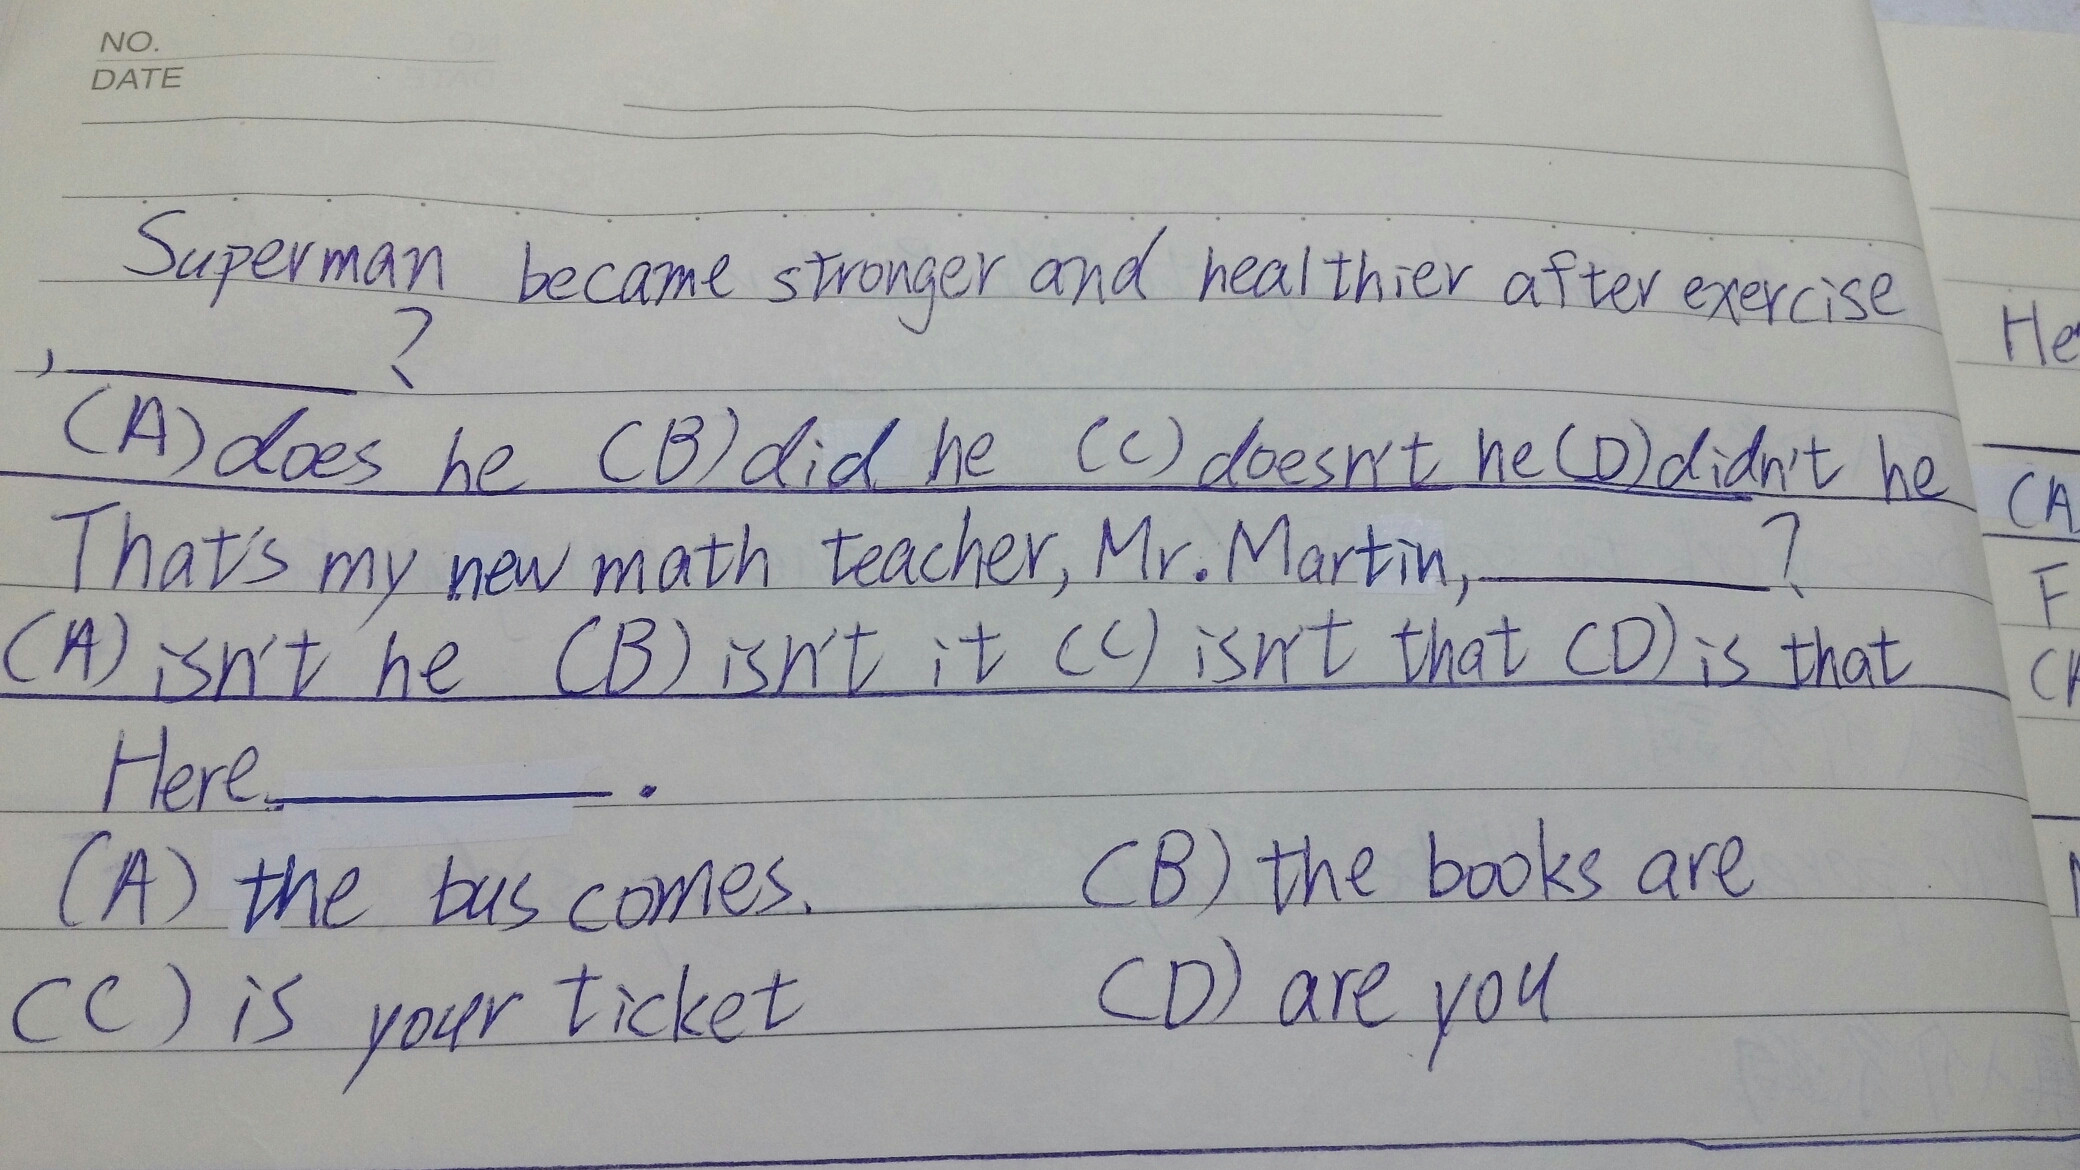 NO.
DATE
Superman became stronger and healthier after exercise
, ________ ?
(A) does he (B) did he (C) doesn't he (D) didn't he
That's my new math teacher, Mr. Martin, ________ ?
(A) isn't he (B) isn't it (C) isn't that (D) is that
Here ________ .
(A) the bus comes. (B) the books are
(C) is your ticket (D) are you
He
(A
F